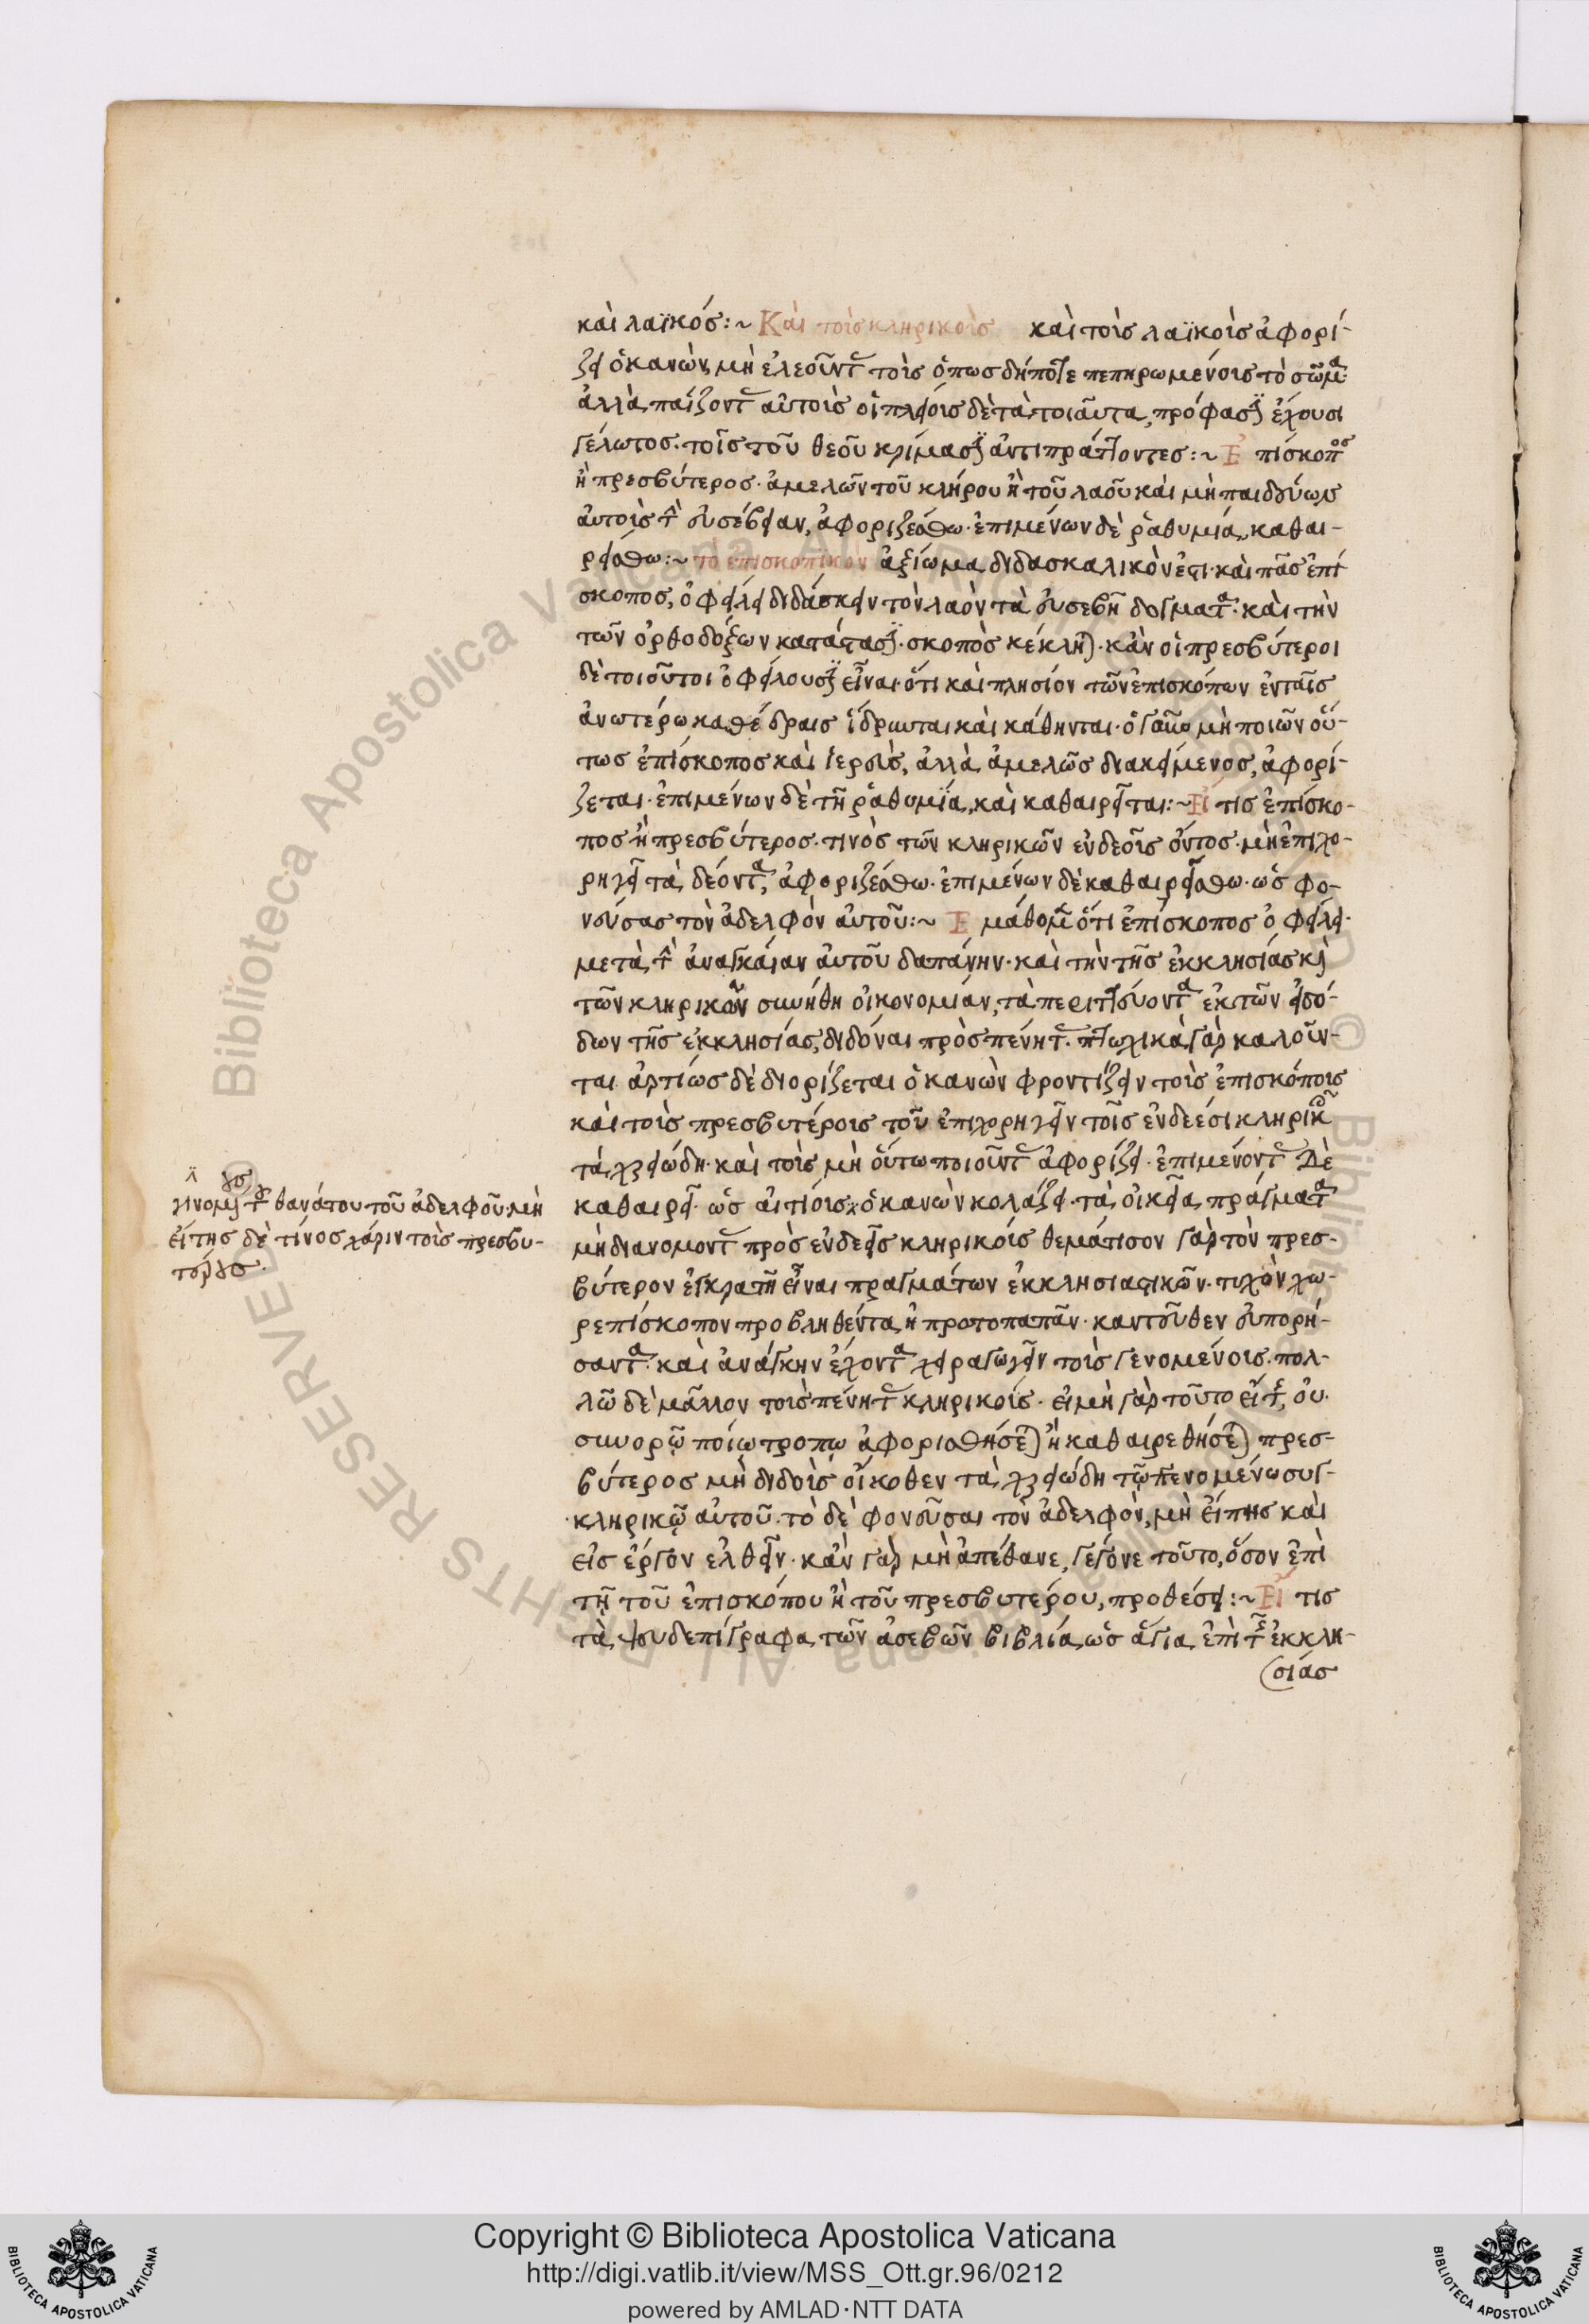 καὶ λαϊκός:~ Καὶ τοῖς κληρικοῖς καὶ τοῖς λαϊκοῖς ἀφορί-
ζει ὁ κανὼν, μὴ ἐλεοῦντας τοῖς ὁπωσδήποτε πεπηρωμένοις τὸ σῶμα·
ἀλλὰ παίζοντας αὐτοῖς οἱ πλείοις δὲ τὰ τοιαῦτα, πρόφασιν ἔχουσι
γέλωτος. τοῖς τοῦ θεοῦ κρίμασιν ἀντιπράττοντες:~ Ἐπίσκοπος
ἢ πρεσβύτερος· ἀμελῶν τοῦ κλήρου ἢ τοῦ λαοῦ καὶ μὴ παιδεύων
αὐτοῖς τὴν εὐσέβειαν, ἀφοριζέσθω· ἐπιμένων δὲ ῥαθυμία, καθαι-
ρείσθω:~ τὸ ἐπισκοπϊκὸν ἀξίωμα διδασκαλικὸν ἐστι· καὶ πᾶς ἐπί
σκοπος, ὀφείλει διδάσκειν τὸν λαὸν τὰ εὐσεβῆ δόγματα· καὶ τὴν
τῶν ὀρθοδόξων κατάστασιν. σκοπὸς κέκληται· κἂν οἱ πρεσβύτεροι
δὲ τοιοῦτοι ὀφείλουσιν εἶναι· ὅτι καὶ πλησίον τῶν ἐπισκόπων ἐν ταῖς
ἀνωτέρω καθέδραις ἵδρυνται καὶ κάθηνται· ὁ γοῦν μὴ ποιῶν οὕ-
τως ἐπίσκοπος καὶ ἱερεὺς, ἀλλὰ ἀμελῶς διακείμενος, ἀφορί-
ζεται· ἐπιμένων δὲ τῆ ῥαθυμία, καὶ καθαιρεῖται:~ Εἴ τις ἐπίσκο-
πος ἢ πρεσβύτερος· τινὸς τῶν κληρικῶν ἐνδεοῦς ὄντος· μὴ ἐπιχο-
ρηγεῖ τὰ δέοντα, ἀφοριζέσθω· ἐπιμένων δὲ καθαιρείσθω· ὡς φο-
νεύσας τὸν ἀδελφὸν αὐτοῦ:~ Ε μάθομεν ὅτι ἐπίσκοπος ὀφείλει·
μετὰ τὴν ἀναγκαίαν αὐτοῦ δαπάνην· καὶ τὴν τῆς ἐκκλησίας καὶ
τῶν κληρικῶν συνήθη οἰκονομίαν, τὰ περιττεύοντα ἐκ τῶν εἰσό-
δων τῆς ἐκκλησίας, διδόναι πρὸς πένητας· πτωχικὰ γὰρ καλοῦν-
ται ἀρτίως δὲ διορίζεται ὁ κανὼν φροντίζειν τοῖς ἐπισκόποις
καὶ τοῖς πρεσβυτέροις τοῦ ἐπιχορηγεῖν τοῖς ἐνδεέσι κληρικῶν
τὰ χρειώδη· καὶ τοῖς μὴ οὕτω ποιοῦντας ἀφορίζει· ἐπιμένοντας δὲ
καθαιρεῖ· ὡς αἰτίοις ὁ κανὼν κολάζει· τὰ οἰκεῖα πράγματα
μὴ διανομοντας πρὸς ἐνδεεῖς κληρικοῖς θεμάτισον γὰρ τὸν πρεσ-
βύτερον ἐγκρατῆ εἶναι πραγμάτων ἐκκλησιαστικῶν· τυχὸν χω-
ρεπίσκοπον προβληθέντα, ἢ πρωτοπαπᾶν· καντεῦθεν εὐπορή-
σαντα· καὶ ἀνάγκην ἔχοντα χειραγωγεῖν τοῖς γενομένοις· πολ-
λῶ δὲ μᾶλλον τοῖς πένητας κληρικοῖς· εἰ μὴ γὰρ τοῦτο εἴπης, οὐ
συνορῶ ποίω τροπω ἀφορισθήσεται ἢ καθαιρεθήσεται πρεσ-
βύτερος μὴ διδοὺς οἴκοθεν τὰ χρειώδη τῷ πενομένω συγ-
κληρικῷ αὐτοῦ· τὸ δὲ φονεῦσαι τὸν ἀδελφὸν, μὴ εἴπης καὶ
εἰς ἔργον ἐλθεῖν· κἂν γὰρ μὴ ἀπέθανε, γέγονε τοῦτο, ὅσον ἐπὶ
τῇ τοῦ ἐπισκόπου ἢ τοῦ πρεσβυτέρου, προθέσει:~ Εἴ τις
τὰ ψευδεπίγραφα τῶν ἀσεβῶν βιβλία, ὡς ἅγια ἐπὶ τῆς ἐκκλη-
σίας
θανάτου τοῦ ἀδελφοῦ. μὴ
εἴπης δὲ τίνος χάριν τοῖς πρεσβυ-
τέροις.
Copyright © Biblioteca Apostolica Vaticana
http://digi.vatlib.it/view/MSS_Ott.gr.96/0212
powered by AMLAD·NTT DATA
BIBLIOTECA APOSTOLICA VATICANA
BIBLIOTECA APOSTOLICA VATICANA